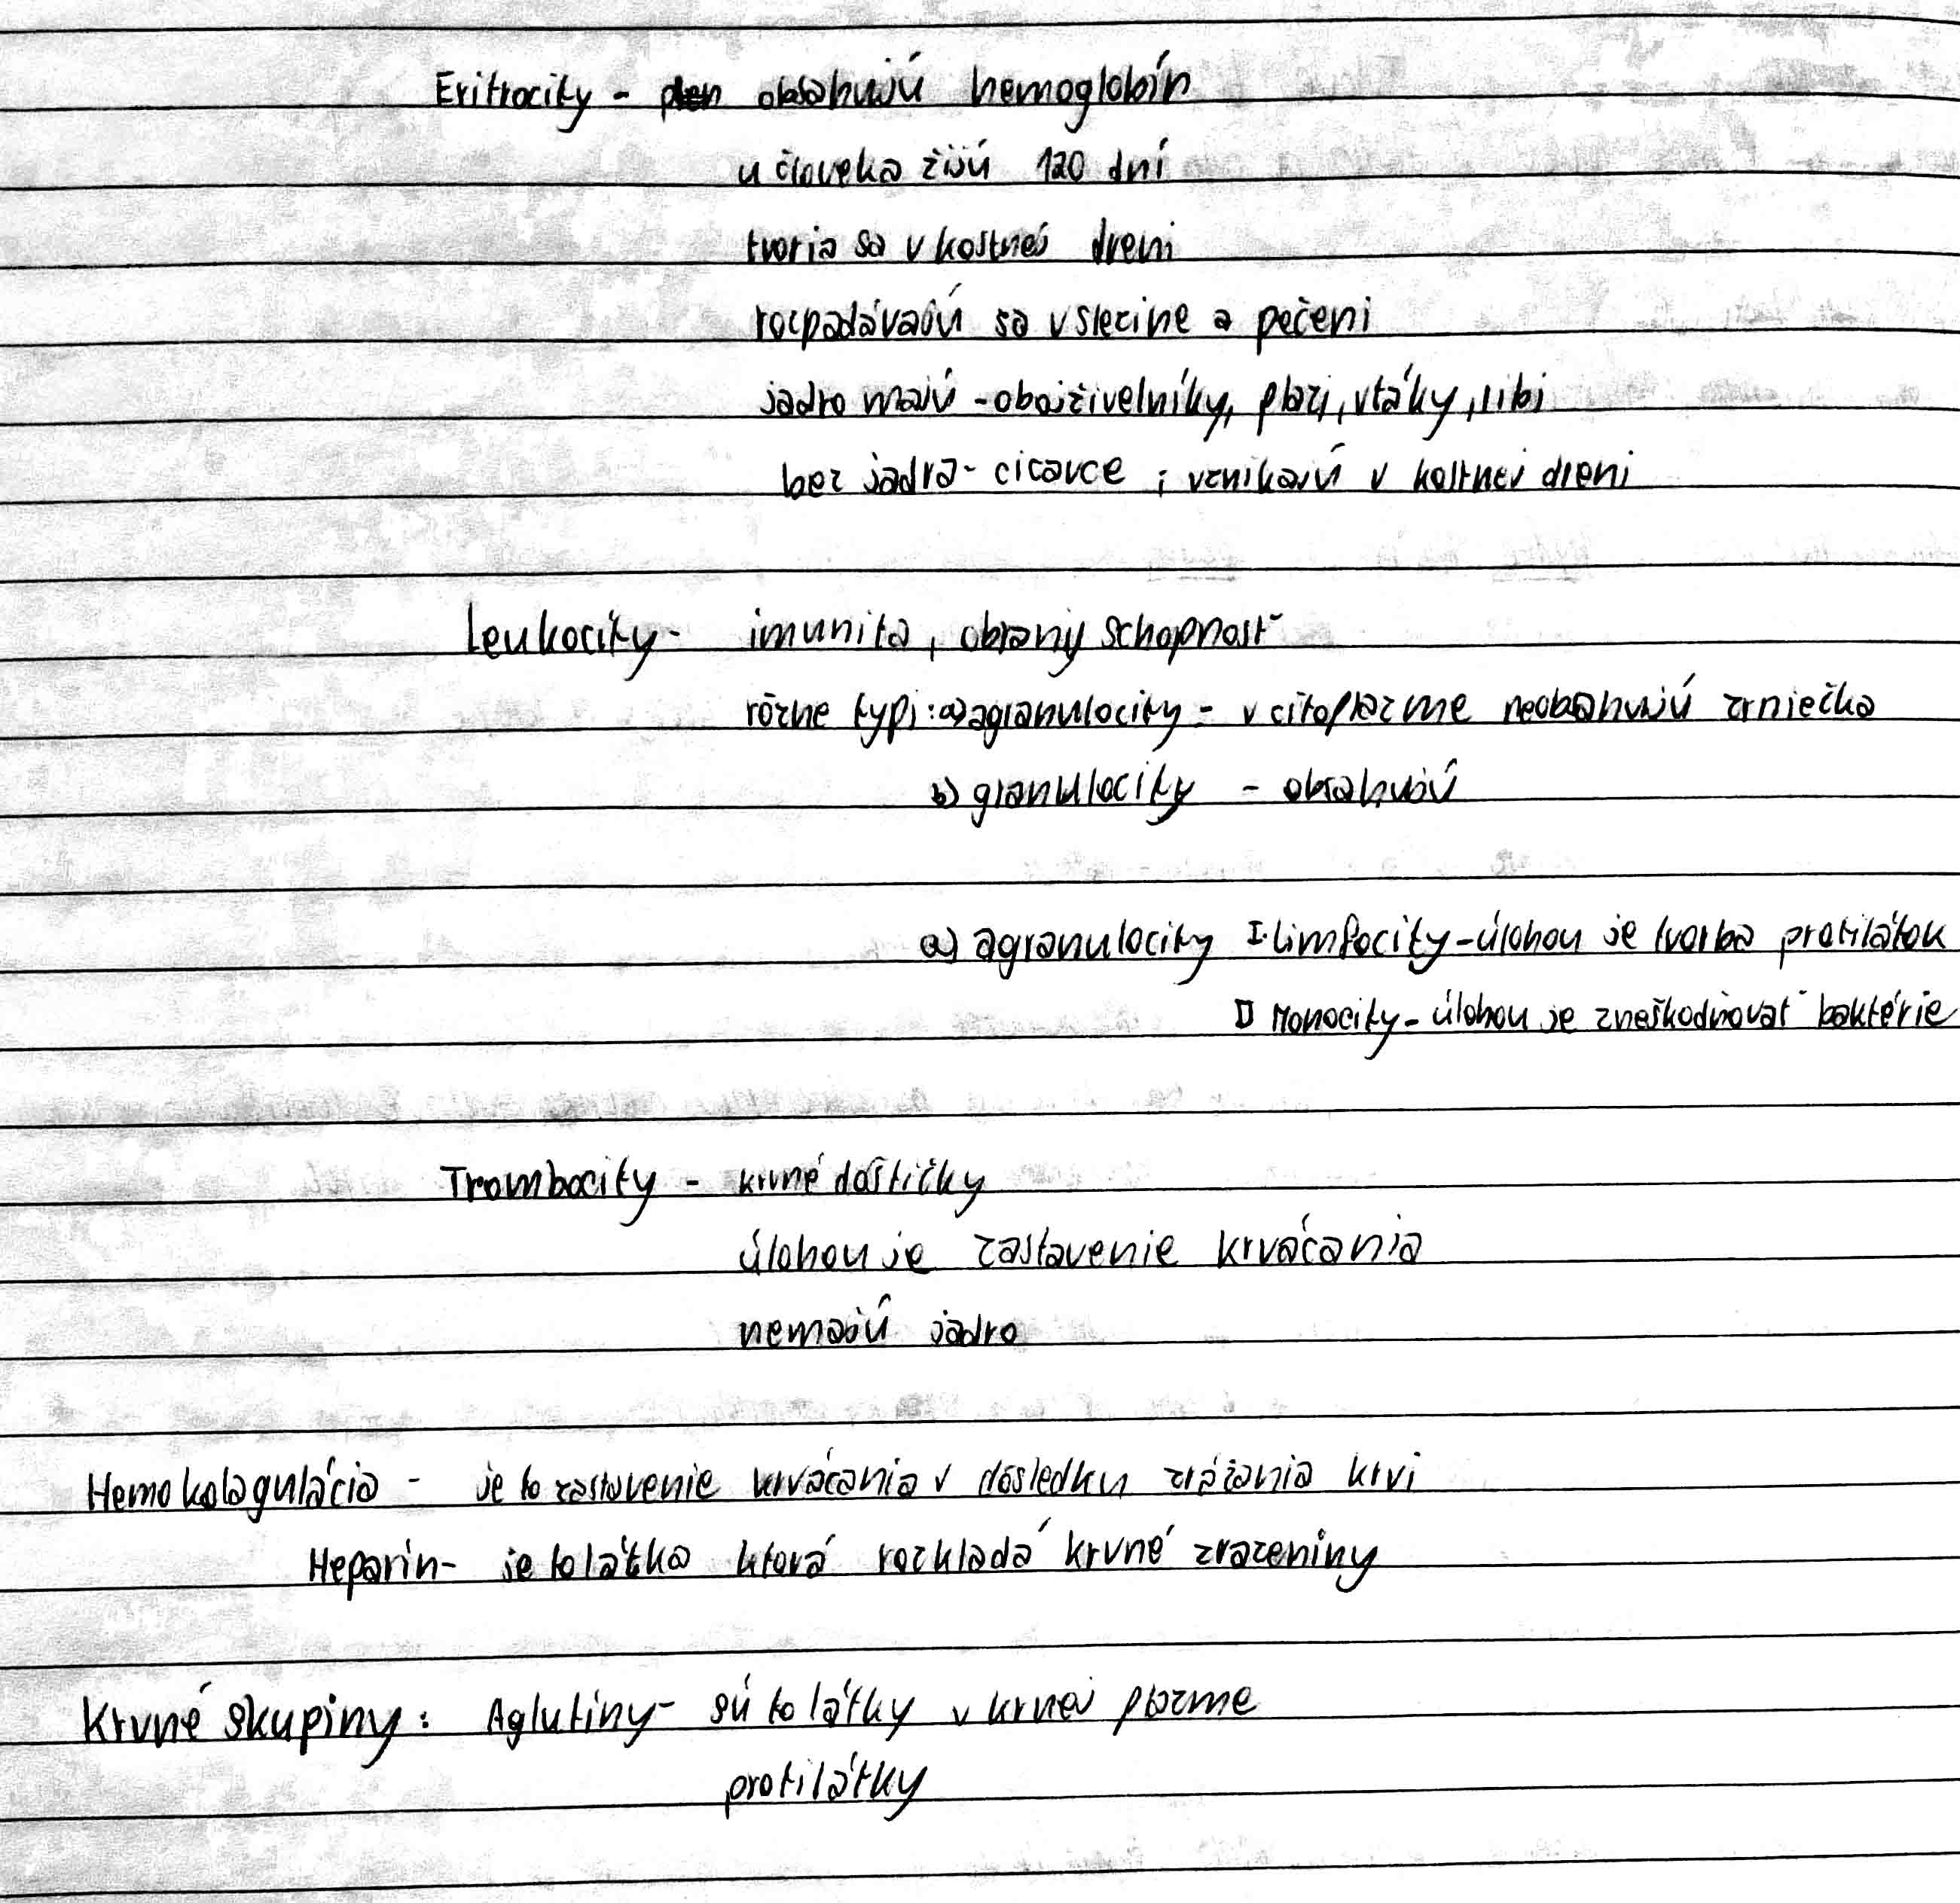 Eritrocity - obsahujú hemoglobín
u človeka žijú 120 dní
tvoria sa v kostnej dreni
rozpadávajú sa v slezine a pečeni
jadro majú - obojživelníky, plazi, vtáky, ribi
bez jadra - cicavce ; vznikajú v kostnej dreni
Leukocity - imunita, obrany schopnosť
rôzne typi: a) agranulocity - v citoplazme neobsahujú zrniečka
b) granulocity - obsahujú
a) agranulocity I. limfocity - úlohou je tvorba protilátok
II Monocity - úlohou je zneškodňovať baktérie
Trombocity - krvné doštičky
úlohou je zastavenie krvácania
nemajú jadro
Hemokolagulácia - je to zastavenie krvácania v dôsledku zrážania krvi
Heparín - je to látka ktorá rozkladá krvné zrazeniny
Krvné skupiny: Aglutiny - sú to látky v krnej plazme
protilátky